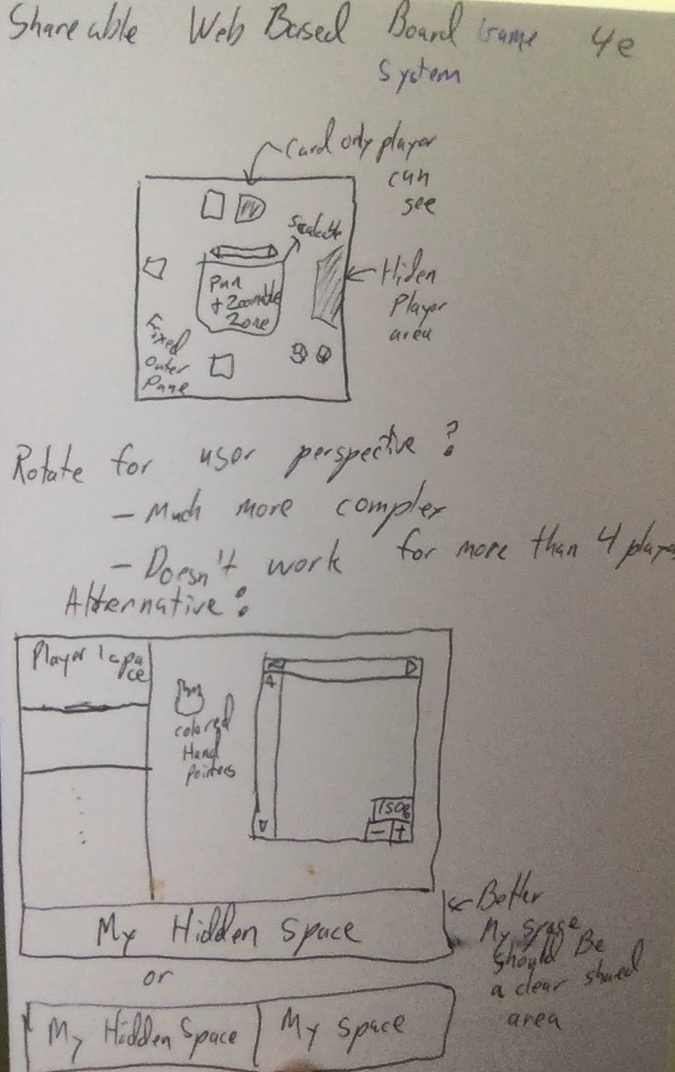 Shareable Web Based Board Game 4e
System
Card only player
can
see
Scalable
Pan
+ Zoomable
Zone
Hiden
Player
area
Fixed
Outer
Pane
Rotate for user perspective?
- Much more complex
- Doesn't work for more than 4 playe
Alternative:
Player 1 spa
ce
colored
Hand
pointers
- +
My Hidden Space
Better
My space
should Be
a clear shared
area
or
My Hidden Space My space